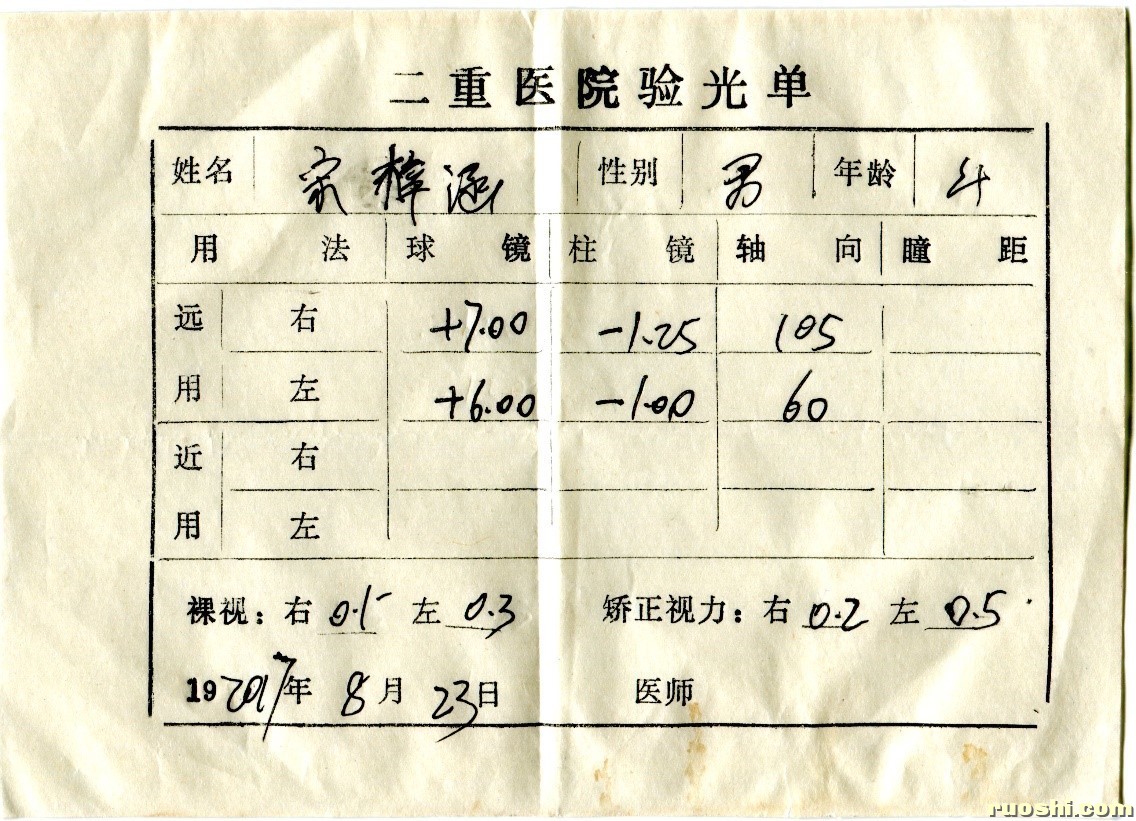 二重医院验光单
姓名 宋梓涵 性别 男 年龄 4
用法 球镜 柱镜 轴向 瞳距
远用 右 +7.00 -1.25 105
左 +6.00 -1.00 60
近用 右
左
裸视：右 0.15 左 0.3 矫正视力：右 0.2 左 0.5
19 2017年 8月 23日 医师
ruoshi.com